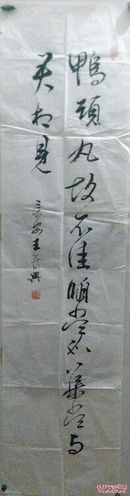 鴨頭丸故不佳明當必集當與
君相見
王 興